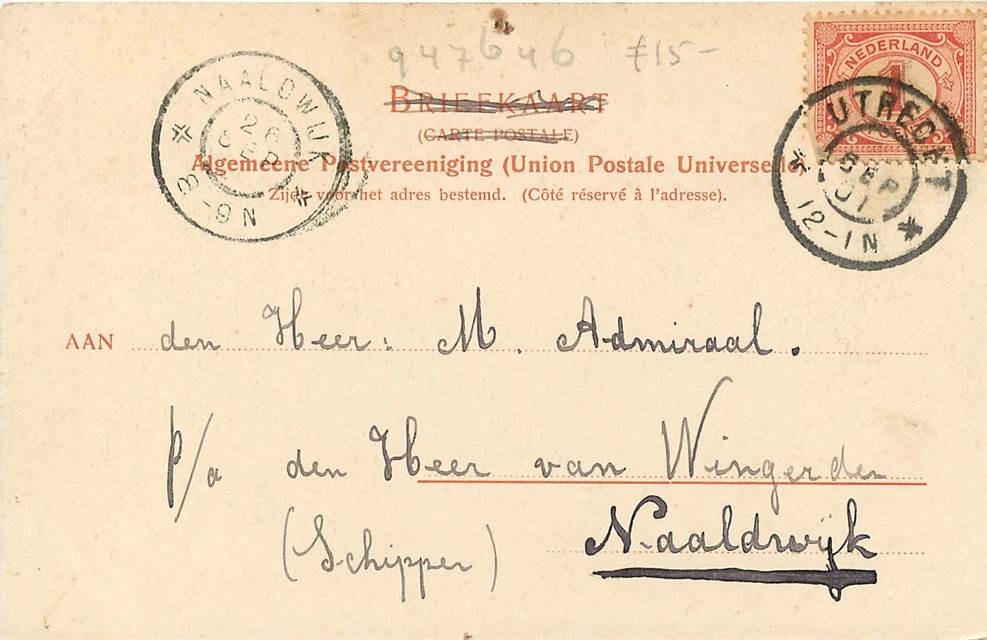 947646 £15-
NEDERLAND
1
NAALDWIJK
26
SEP
8-9N
UTRECHT
SEP
01
12-1N
BRIEFKAART
(CARTE POSTALE)
Algemeene Postvereeniging (Union Postale Universelle)
Zijde voor het adres bestemd. (Côté réservé à l'adresse).
AAN den Heer: M. Admiraal.
p/a den Heer van Wingerden
(Schipper) Naaldwijk